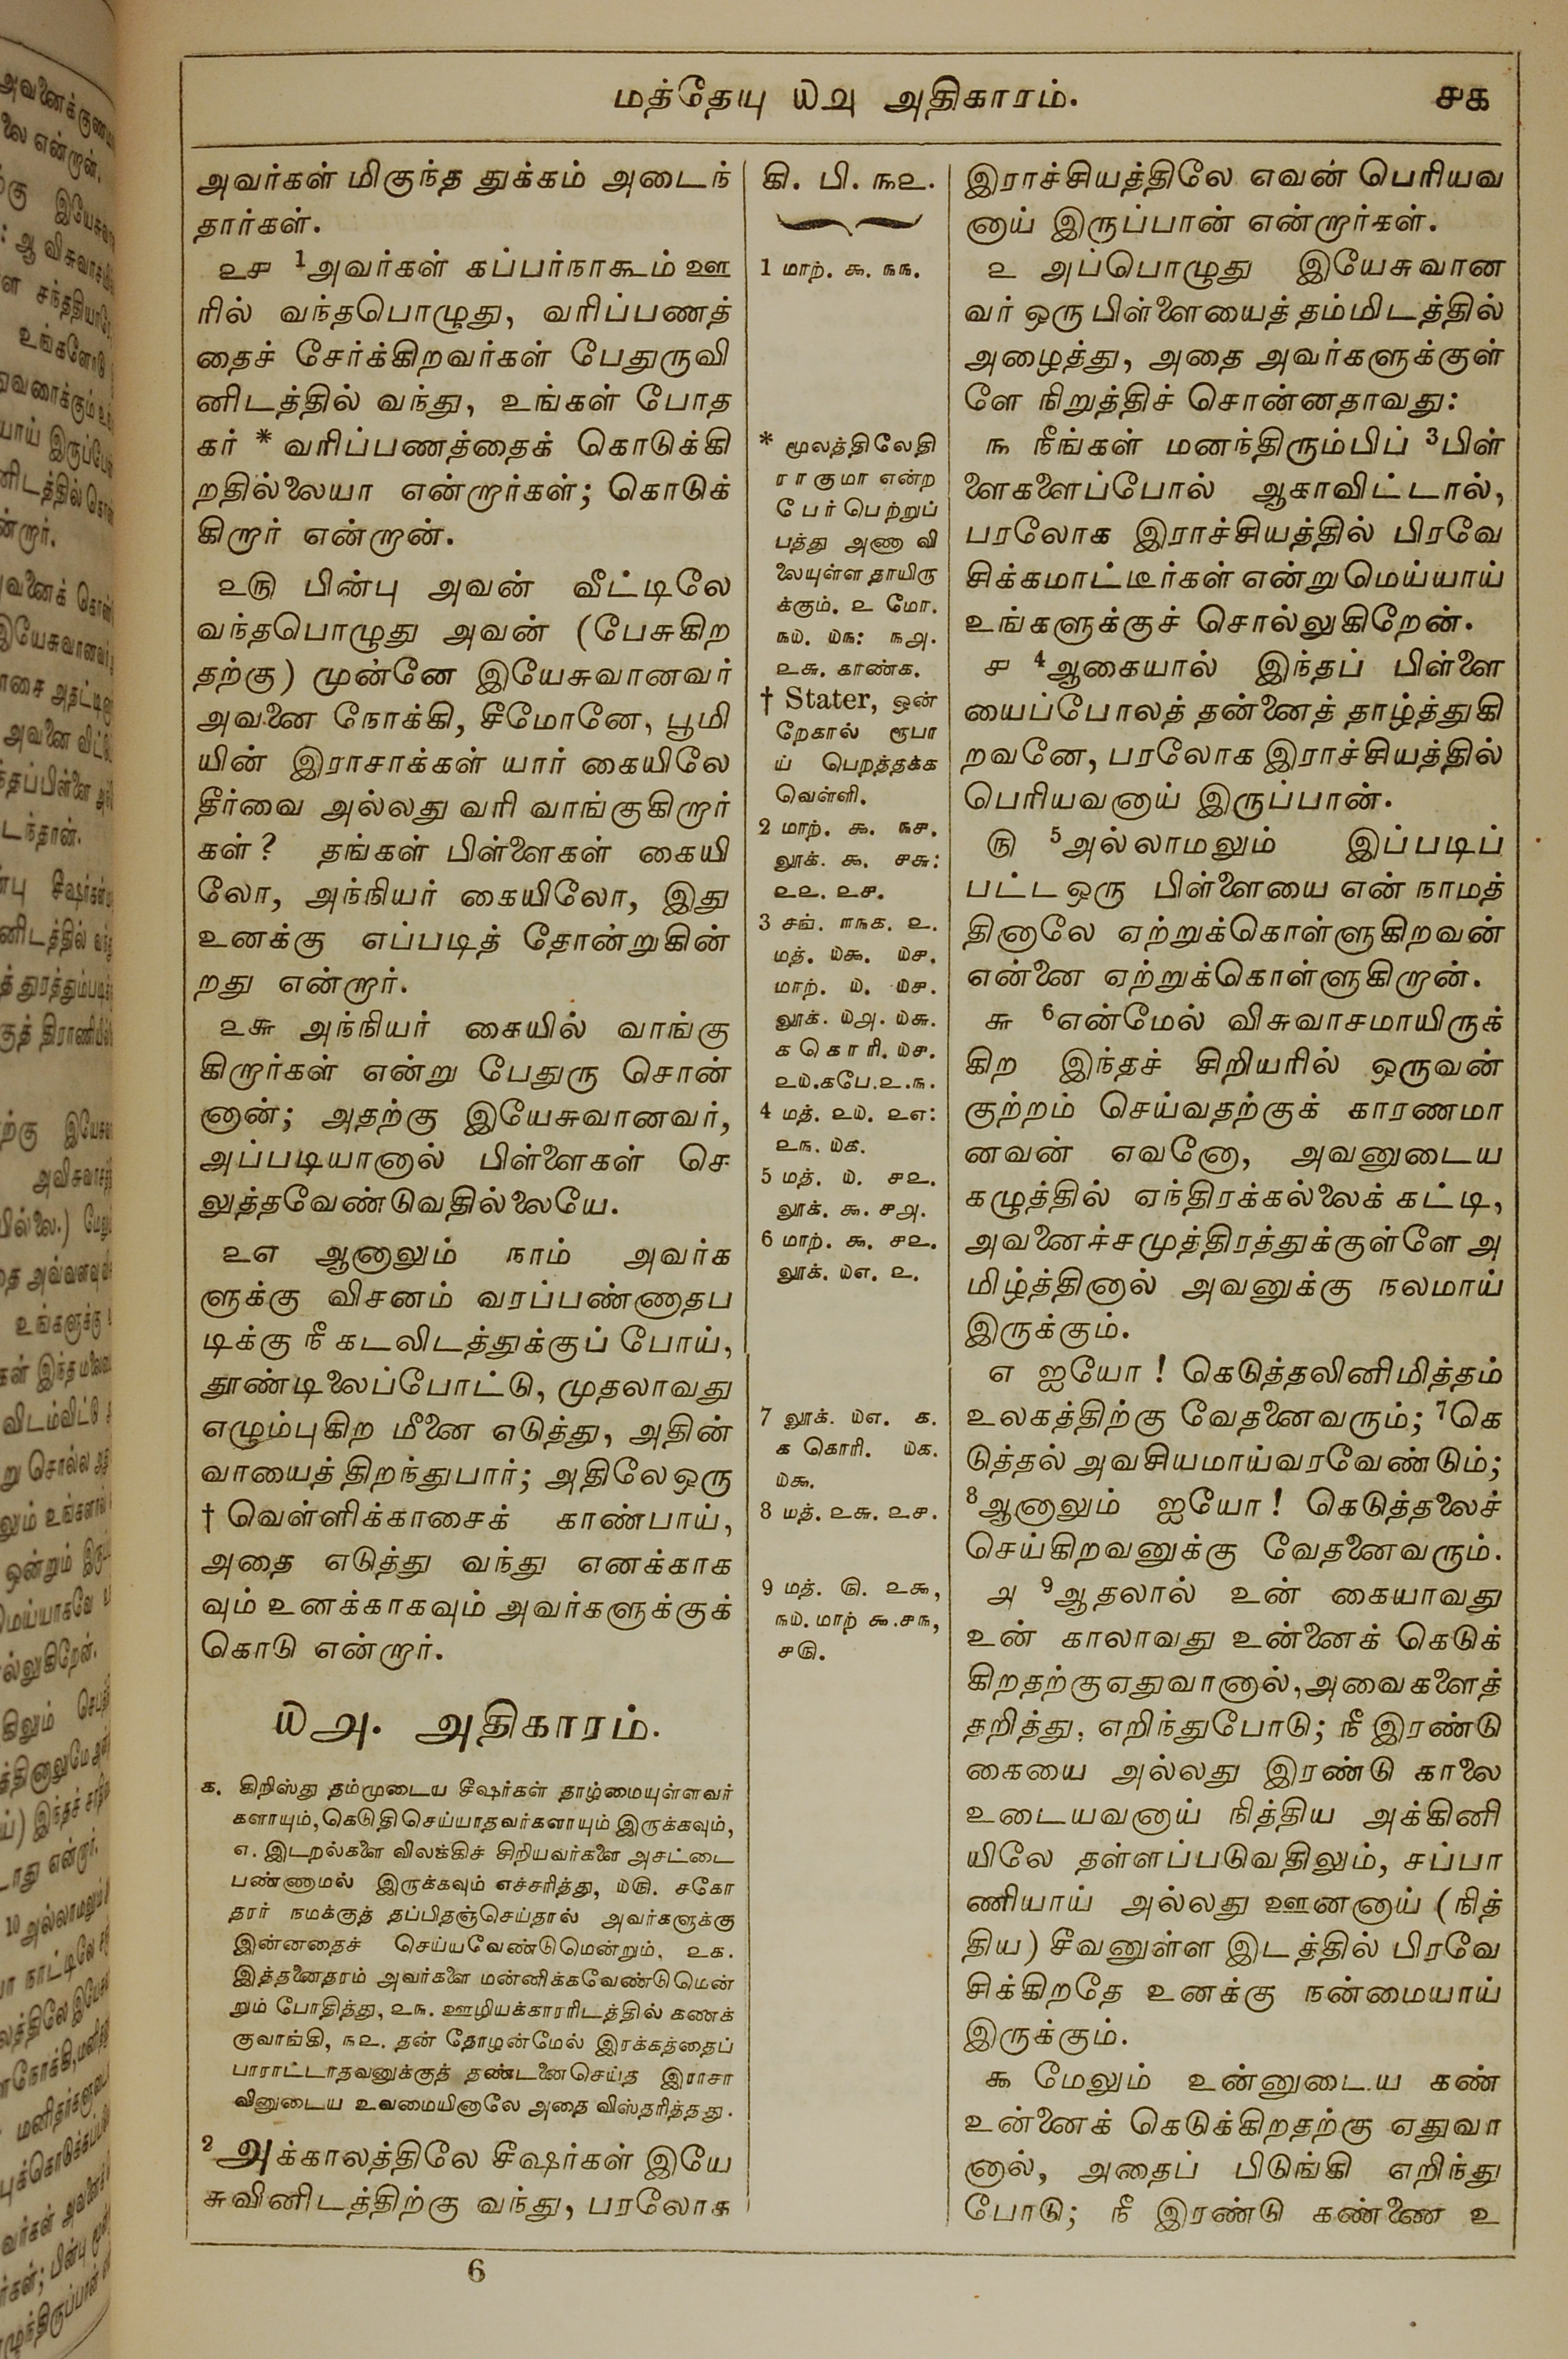 மத்தேயு ௰௮ அதிகாரம்.
௪௧
அவர்கள் மிகுந்த துக்கம் அடைந்
தார்கள்.
௨௪ 1அவர்கள் கப்பர்நாகூம் ஊ
ரில் வந்தபொழுது, வரிப்பணத்
தைச் சேர்க்கிறவர்கள் பேதுருவி
னிடத்தில் வந்து, உங்கள் போத
கர் * வரிப்பணத்தைக் கொடுக்கி
றதில்லையா என்றார்கள்; கொடுக்
கிறார் என்றான்.
௨௫ பின்பு அவன் வீட்டிலே
வந்தபொழுது அவன் (பேசுகிற
தற்கு) முன்னே இயேசுவானவர்
அவனை நோக்கி, சீமோனே, பூமி
யின் இராசாக்கள் யார் கையிலே
தீர்வை அல்லது வரி வாங்குகிறார்
கள்? தங்கள் பிள்ளைகள் கையி
லோ, அந்நியர் கையிலோ, இது
உனக்கு எப்படித் தோன்றுகின்
றது என்றார்.
௨௬ அந்நியர் கையில் வாங்கு
கிறார்கள் என்று பேதுரு சொன்
னான்; அதற்கு இயேசுவானவர்,
அப்படியானால் பிள்ளைகள் செ
லுத்தவேண்டுவதில்லையே.
௨௭ ஆனாலும் நாம் அவர்க
ளுக்கு விசனம் வரப்பண்ணாதப
டிக்கு நீ கடலிடத்துக்குப் போய்,
தூண்டிலைப்போட்டு, முதலாவது
எழும்புகிற மீனை எடுத்து, அதின்
வாயைத் திறந்துபார்; அதிலே ஒரு
† வெள்ளிக்காசைக் காண்பாய்,
அதை எடுத்து வந்து எனக்காக
வும் உனக்காகவும் அவர்களுக்குக்
கொடு என்றார்.
௰௮. அதிகாரம்.
௧. கிறிஸ்து தம்முடைய சீஷர்கள் தாழ்மையுள்ளவர்
களாயும், கெடுதிசெய்யாதவர்களாயும் இருக்கவும்,
௭. இடறல்களை விலக்கிச் சிறியவர்களை அசட்டை
பண்ணாமல் இருக்கவும் எச்சரித்து, ௰௫. சகோ
தரர் நமக்குத் தப்பிதஞ்செய்தால் அவர்களுக்கு
இன்னதைச் செய்யவேண்டுமென்றும், ௨௧.
இத்தனைதரம் அவர்களை மன்னிக்கவேண்டுமென்
றும் போதித்து, ௨௩. ஊழியக்காரரிடத்தில் கணக்
குவாங்கி, ௩௨. தன் தோழன்மேல் இரக்கத்தைப்
பாராட்டாதவனுக்குத் தண்டனைசெய்த இராசா
வினுடைய உவமையினாலே அதை விஸ்தரித்தது.
2 அக்காலத்திலே சீஷர்கள் இயே
சுவினிடத்திற்கு வந்து, பரலோக
கி. பி. ௩௨.
1 மாற். ௯. ௩௩.
* மூலத்திலேதி
ராகுமா என்ற
பேர்பெற்றுப்
பத்து அணா வி
லையுள்ள தாயிரு
க்கும். ௨ மோ.
௩௰. ௰௩: ௩௮.
௨௬. காண்க.
† Stater, ஒன்
றேகால் ரூபா
ய் பெறத்தக்க
வெள்ளி.
2 மாற். ௯. ௩௪.
லூக். ௯. ௪௬:
௨௨. ௨௪.
3 சங். ௱௩௧. ௨.
மத். ௰௯. ௰௪.
மாற். ௰. ௰௪.
லூக். ௰௮. ௰௬.
௧ கொரி. ௰௪.
௨௰. ௧பே. ௨. ௩.
4 மத். ௨௰. ௨௭:
௨௩. ௰௧.
5 மத். ௰. ௪௨.
லூக். ௯. ௪௮.
6 மாற். ௯. ௪௨.
லூக். ௰௭. ௨.
7 லூக். ௰௭. ௧.
௧ கொரி. ௰௧.
௰௯.
8 மத். ௨௬. ௨௪.
9 மத். ௫. ௨௯,
௩௰. மாற் ௯. ௪௩,
௪௫.
இராச்சியத்திலே எவன் பெரியவ
னாய் இருப்பான் என்றார்கள்.
௨ அப்பொழுது இயேசுவான
வர் ஒரு பிள்ளையைத் தம்மிடத்தில்
அழைத்து, அதை அவர்களுக்குள்
ளே நிறுத்திச் சொன்னதாவது:
௩ நீங்கள் மனந்திரும்பிப் 3பிள்
ளைகளைப்போல் ஆகாவிட்டால்,
பரலோக இராச்சியத்தில் பிரவே
சிக்கமாட்டீர்கள் என்று மெய்யாய்
உங்களுக்குச் சொல்லுகிறேன்.
௪ 4ஆகையால் இந்தப் பிள்ளை
யைப்போலத் தன்னைத் தாழ்த்துகி
றவனே, பரலோக இராச்சியத்தில்
பெரியவனாய் இருப்பான்.
௫ 5அல்லாமலும் இப்படிப்
பட்ட ஒரு பிள்ளையை என் நாமத்
தினாலே ஏற்றுக்கொள்ளுகிறவன்
என்னை ஏற்றுக்கொள்ளுகிறான்.
௬ 6என்மேல் விசுவாசமாயிருக்
கிற இந்தச் சிறியரில் ஒருவன்
குற்றம் செய்வதற்குக் காரணமா
னவன் எவனோ, அவனுடைய
கழுத்தில் ஏந்திரக்கல்லைக் கட்டி,
அவனைச்சமுத்திரத்துக்குள்ளே அ
மிழ்த்தினால் அவனுக்கு நலமாய்
இருக்கும்.
௭ ஐயோ! கெடுத்தலினிமித்தம்
உலகத்திற்கு வேதனைவரும்; 7கெ
டுத்தல் அவசியமாய்வரவேண்டும்;
8ஆனாலும் ஐயோ! கெடுத்தலைச்
செய்கிறவனுக்கு வேதனைவரும்.
௮ 9ஆதலால் உன் கையாவது
உன் காலாவது உன்னைக் கெடுக்
கிறதற்கு ஏதுவானால், அவைகளைத்
தறித்து, எறிந்துபோடு; நீ இரண்டு
கையை அல்லது இரண்டு காலை
உடையவனாய் நித்திய அக்கினி
யிலே தள்ளப்படுவதிலும், சப்பா
ணியாய் அல்லது ஊனனாய் (நித்
திய) சீவனுள்ள இடத்தில் பிரவே
சிக்கிறதே உனக்கு நன்மையாய்
இருக்கும்.
௯ மேலும் உன்னுடைய கண்
உன்னைக் கெடுக்கிறதற்கு ஏதுவா
னால், அதைப் பிடுங்கி எறிந்து
போடு; நீ இரண்டு கண்ணை உ
6